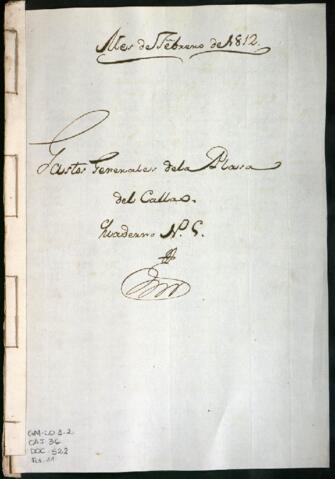 Mes de Febrero de 1812.
Gastos Generales dela Plasa
del Callao.
Quaderno N. 5.
GM-CO 3.2
CAJ. 36
DOC. 522
Fs. 11